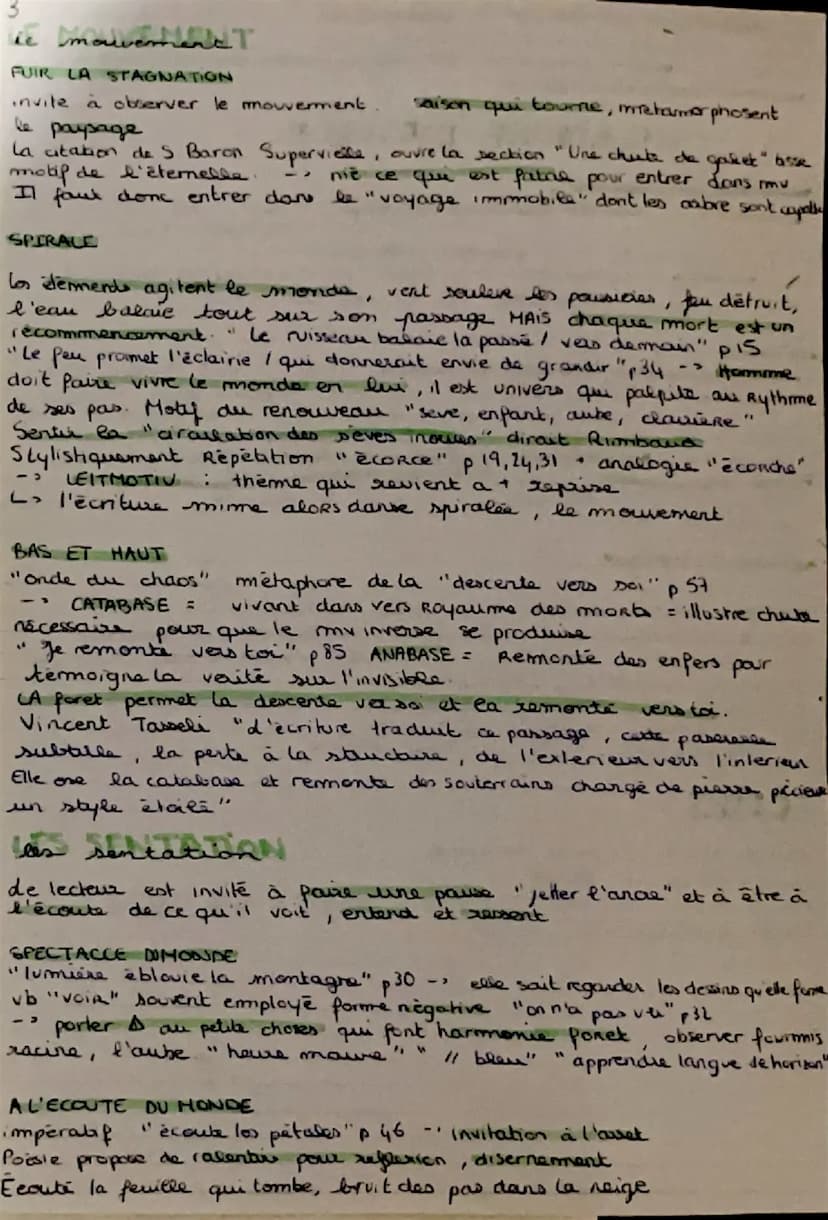 3
Le mouvement
FUIR LA STAGNATION
invite à observer le mouvement. saison qui tourne, métamorphosent
le paysage
La citation de S Baron Supervielle, ouvre la section "Une chute de galet"
motif de l'éternelle. -> nie ce que est patrie pour entrer dans mv
Il faut donc entrer dans le "voyage immobile" dont les arbre sont capable
SPIRALE
Los élements agitent le monde, vent souleve les poussieres, feu détruit,
l'eau balaie tout sur son passage MAIS chaque mort est un
recommencement. "Le ruisseau balaie la passé / vers demain" p 15
"Le feu promet l'éclairie / qui donnerait envie de grandir" p 34 -> Homme
doit faire vivre le monde en lui, il est univers qui palpite au Rythme
de ses pas. Motif du renouveau "seve, enfant, aube, clairière"
Sentir la "circulation des sèves inouies" dirait Rimbaud
Stylistiquement Répétition "écorce" p 19, 24, 31 + analogie "écorche"
-> LEITMOTIV : thème qui revient a + reprise
L> l'écriture mime alors danse spiralée, le mouvement
BAS ET HAUT
"onde du chaos" métaphore de la "descente vers soi" p 57
-> CATABASE = vivant dans vers Royaume des morts = illustre chute
nécessaire pour que le mv inverse se produise
"Je remonte vers toi" p 85 ANABASE = Remonté des enfers pour
témoigne la verité sur l'invisible.
LA foret permet la descente vers soi et la remonté vers toi.
Vincent Tasseli "d'écriture traduit ce passage, cette passerelle
subtile, la perte à la structure, de l'exterieur vers l'interieur
Elle ose la catabase et remonte des souterrains chargé de pierre précieuse
un style étoilé"
les sentation
de lecteur est invité à faire une pause "jetter l'ancre" et à être à
l'écoute de ce qu'il voit, entend et ressent
SPECTACLE DU MONDE
"lumière éblouie la montagne" p 30 -> elle sait regarder les dessins qu'elle forme
vb "voir" souvent employé forme négative "on n'a pas vu" p 32
-> porter Δ au petite choses qui font harmonie foret, observer fourmis
racine, l'aube "heure mauve" " // bleu" "apprendre langue de horizon"
A L'ECOUTE DU MONDE
impératif "écoute les pétales" p 46 -> invitation à l'arret
Poésie propose de ralentir pour reflexion, disernement
Écouté la feuille qui tombe, bruit des pas dans la neige